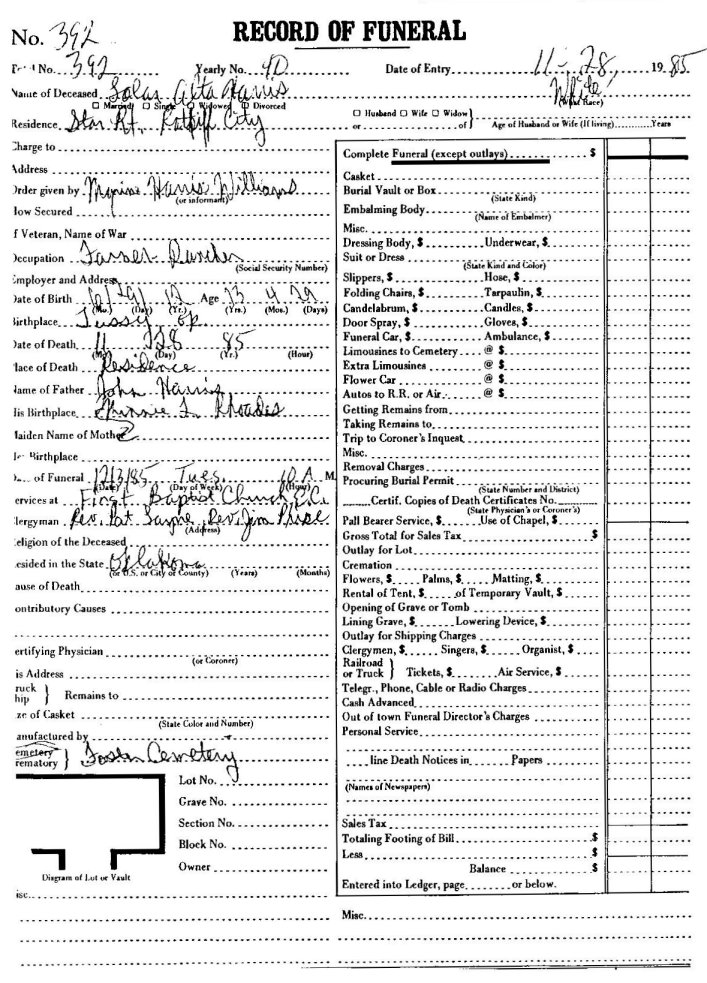 RECORD OF FUNERAL
No. 392
No. 392 Yearly No. 40 Date of Entry 11-28, 1985
Name of Deceased Harris White
Married Single Widowed Divorced (What Race)
Husband Wife Widow
or of
Age of Husband or Wife (If living) Years
Residence Star Rt. Ratliff City
Charge to
Address
Order given by Harris Williams
(or informant)
How Secured
If Veteran, Name of War
Occupation Farmer Rancher
(Social Security Number)
Employer and Address
Date of Birth Age 73 4 29
(Mo.) (Day) (Yr.) (Yrs.) (Mos.) (Days)
Birthplace Tussy
Date of Death 11 28 85
(Mo) (Day) (Yr.) (Hour)
Place of Death Residence
Name of Father John Harris
His Birthplace Minnie L. Rhoades
Maiden Name of Mother
Birthplace
of Funeral 12/3/85 Tues 10 A.M.
(Date) (Day of Week) (Hour)
Services at First Baptist Church
Clergyman Rev. Pat Rev. Jim
(Address)
Religion of the Deceased
Resided in the State Oklahoma
(or U.S. or City or County) (Years) (Months)
Cause of Death
Contributory Causes
Certifying Physician
(or Coroner)
is Address
Truck
Ship } Remains to
ze of Casket
(State Color and Number)
Manufactured by
Cemetery
Crematory } Foster Cemetery
Lot No.
Grave No.
Section No.
Block No.
Owner
Diagram of Lot or Vault
isc.
Complete Funeral (except outlays) $
Casket
Burial Vault or Box
(State Kind)
Embalming Body
(Name of Embalmer)
Misc.
Dressing Body, $ Underwear, $
Suit or Dress
(State Kind and Color)
Slippers, $ Hose, $
Folding Chairs, $ Tarpaulin, $
Candelabrum, $ Candles, $
Door Spray, $ Gloves, $
Funeral Car, $ Ambulance, $
Limousines to Cemetery @ $
Extra Limousines @ $
Flower Car @ $
Autos to R.R. or Air @ $
Getting Remains from
Taking Remains to
Trip to Coroner's Inquest
Misc.
Removal Charges
Procuring Burial Permit
(State Number and District)
Certif. Copies of Death Certificates No.
(State Physician's or Coroner's)
Pall Bearer Service, $ Use of Chapel, $
Gross Total for Sales Tax $
Outlay for Lot
Cremation
Flowers, $ Palms, $ Matting, $
Rental of Tent, $ of Temporary Vault, $
Opening of Grave or Tomb
Lining Grave, $ Lowering Device, $
Outlay for Shipping Charges
Clergymen, $ Singers, $ Organist, $
Railroad
or Truck } Tickets, $ Air Service, $
Telegr., Phone, Cable or Radio Charges
Cash Advanced
Out of town Funeral Director's Charges
Personal Service
line Death Notices in Papers
(Names of Newspapers)
Sales Tax
Totaling Footing of Bill $
Less $
Balance $
Entered into Ledger, page or below.
Misc.